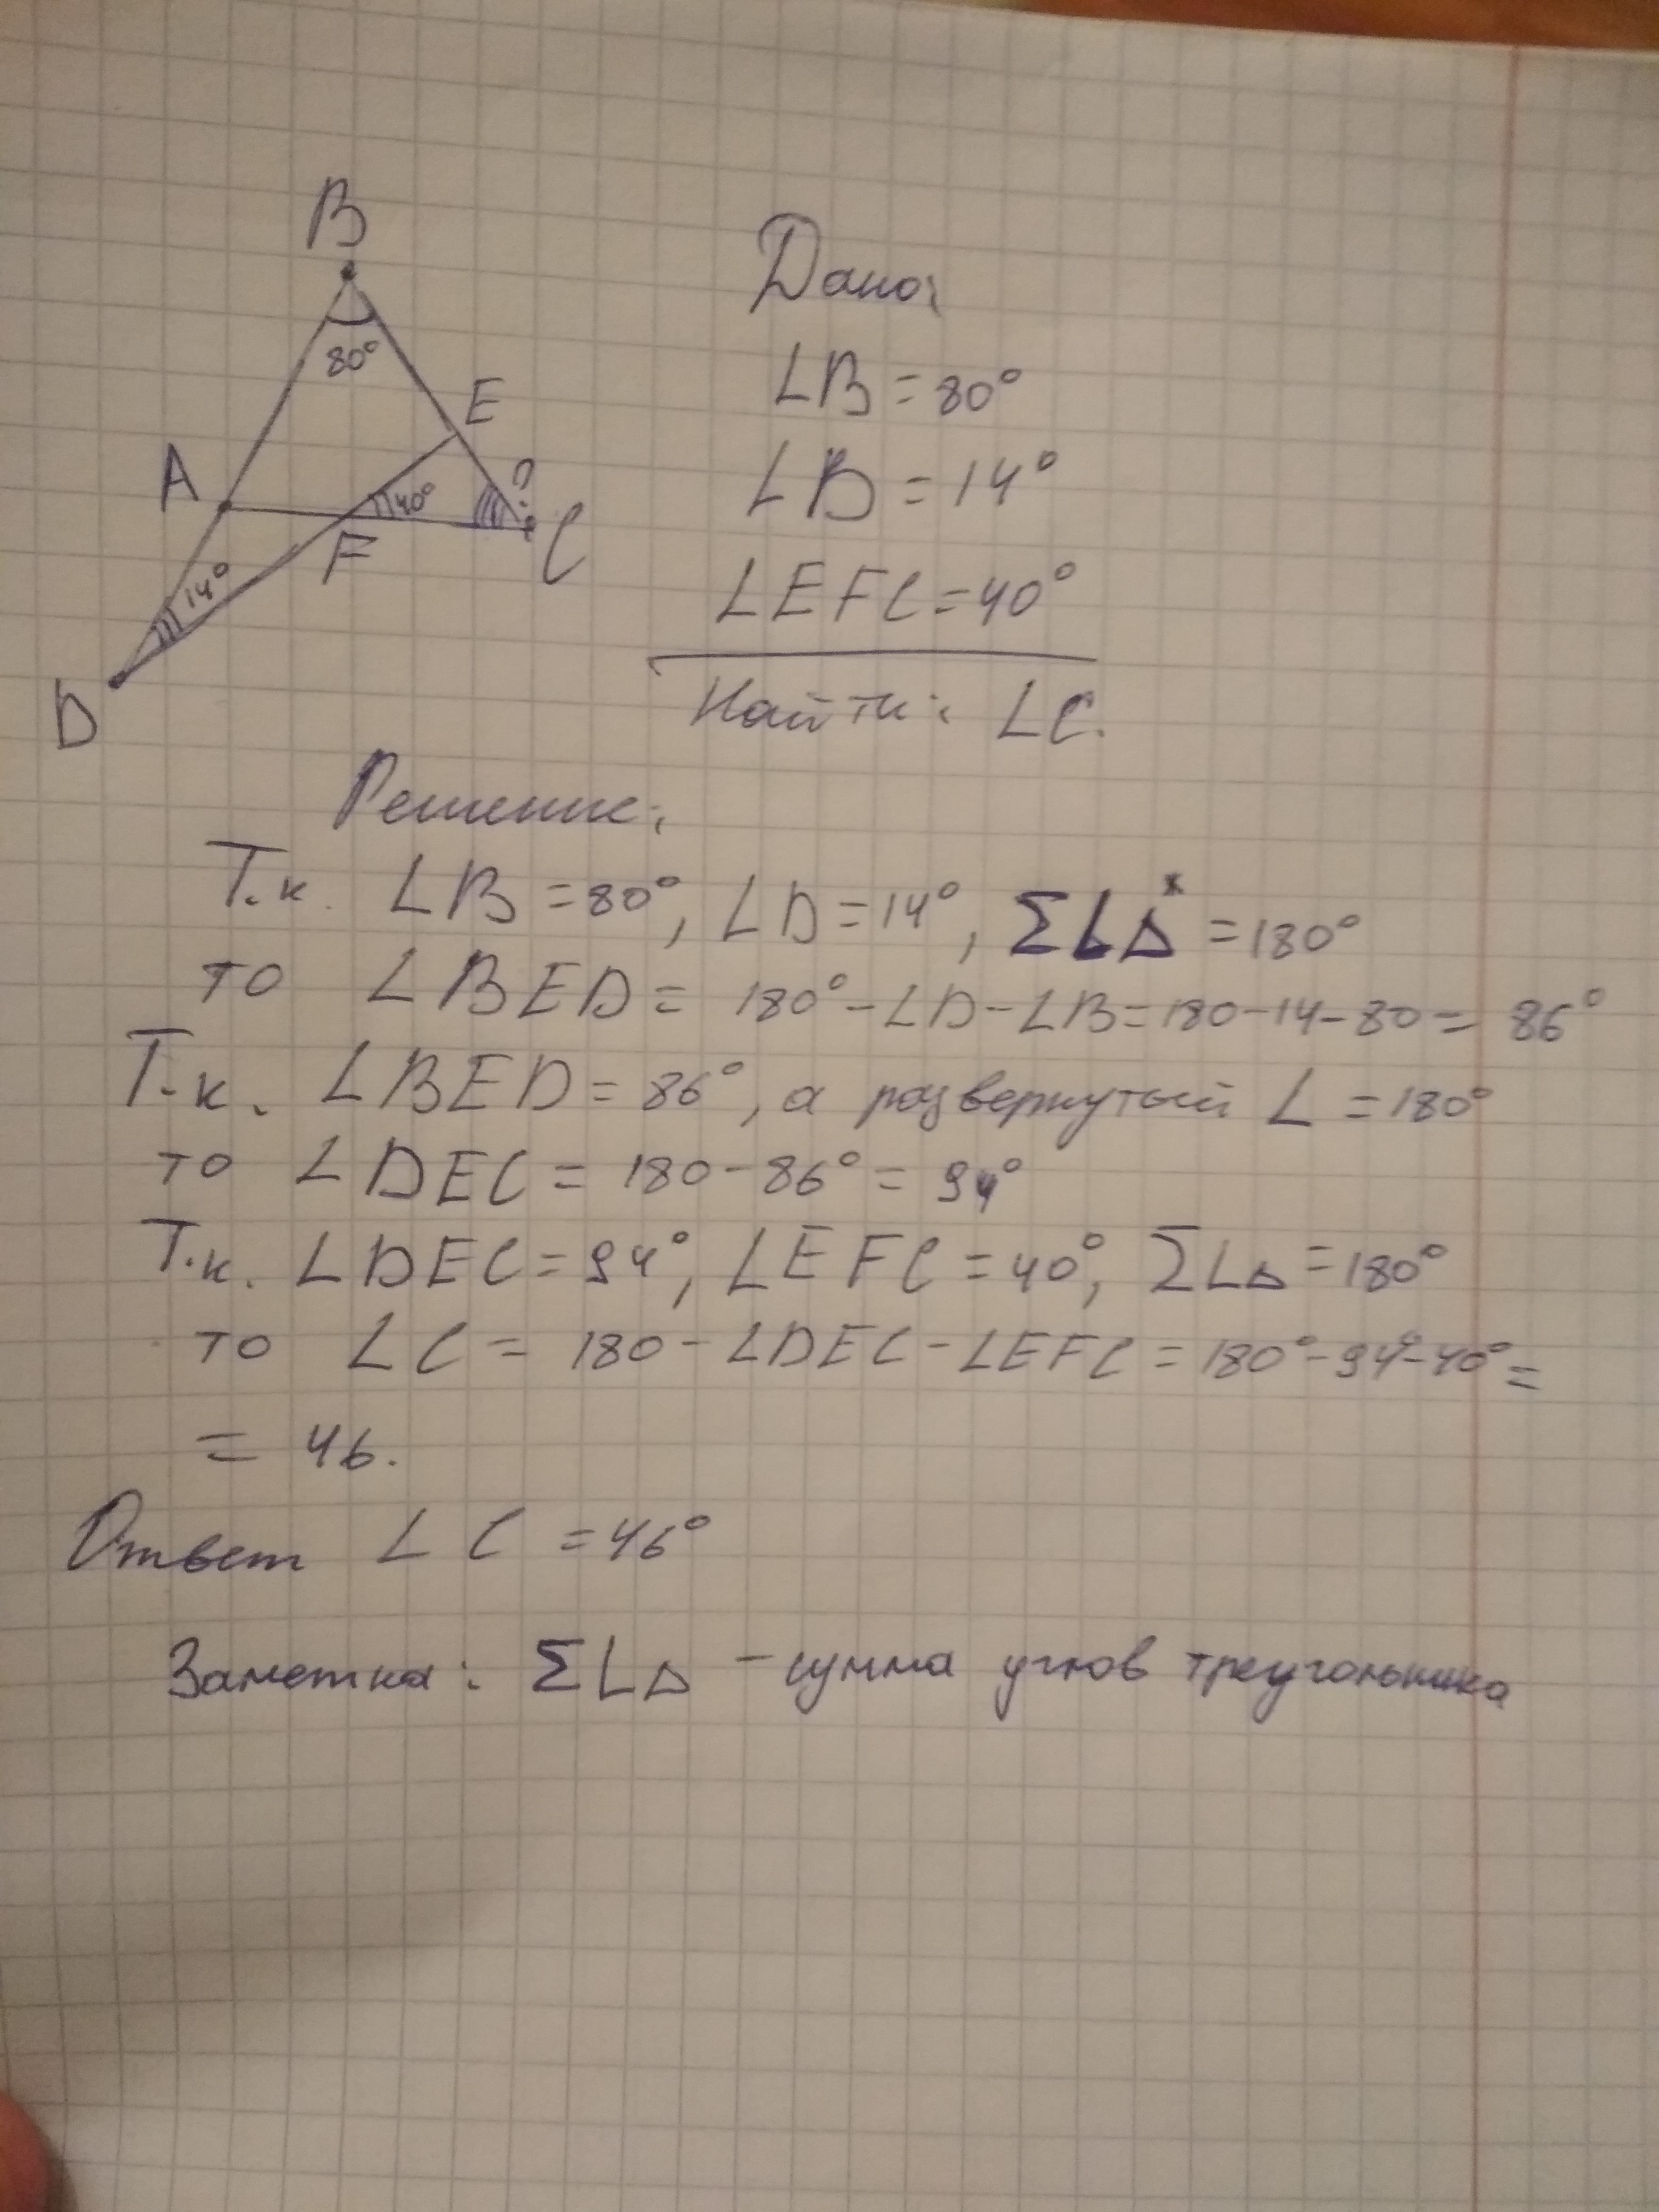 B
80°
E
A
40°
?
F
C
14°
D
Дано:
∠B = 80°
∠D = 14°
∠EFC = 40°
Найти: ∠C.
Решение:
Т.к. ∠B = 80°, ∠D = 14°, Σ∠Δ* = 180°
то ∠BED = 180° - ∠D - ∠B = 180 - 14 - 80 = 86°
Т.к. ∠BED = 86°, а развернутый ∠ = 180°
то ∠DEC = 180 - 86° = 94°
Т.к. ∠DEC = 94°, ∠EFC = 40°, Σ∠Δ = 180°
то ∠C = 180 - ∠DEC - ∠EFC = 180° - 94° - 40° =
= 46.
Ответ ∠C = 46°
Заметка: Σ∠Δ - сумма углов треугольника